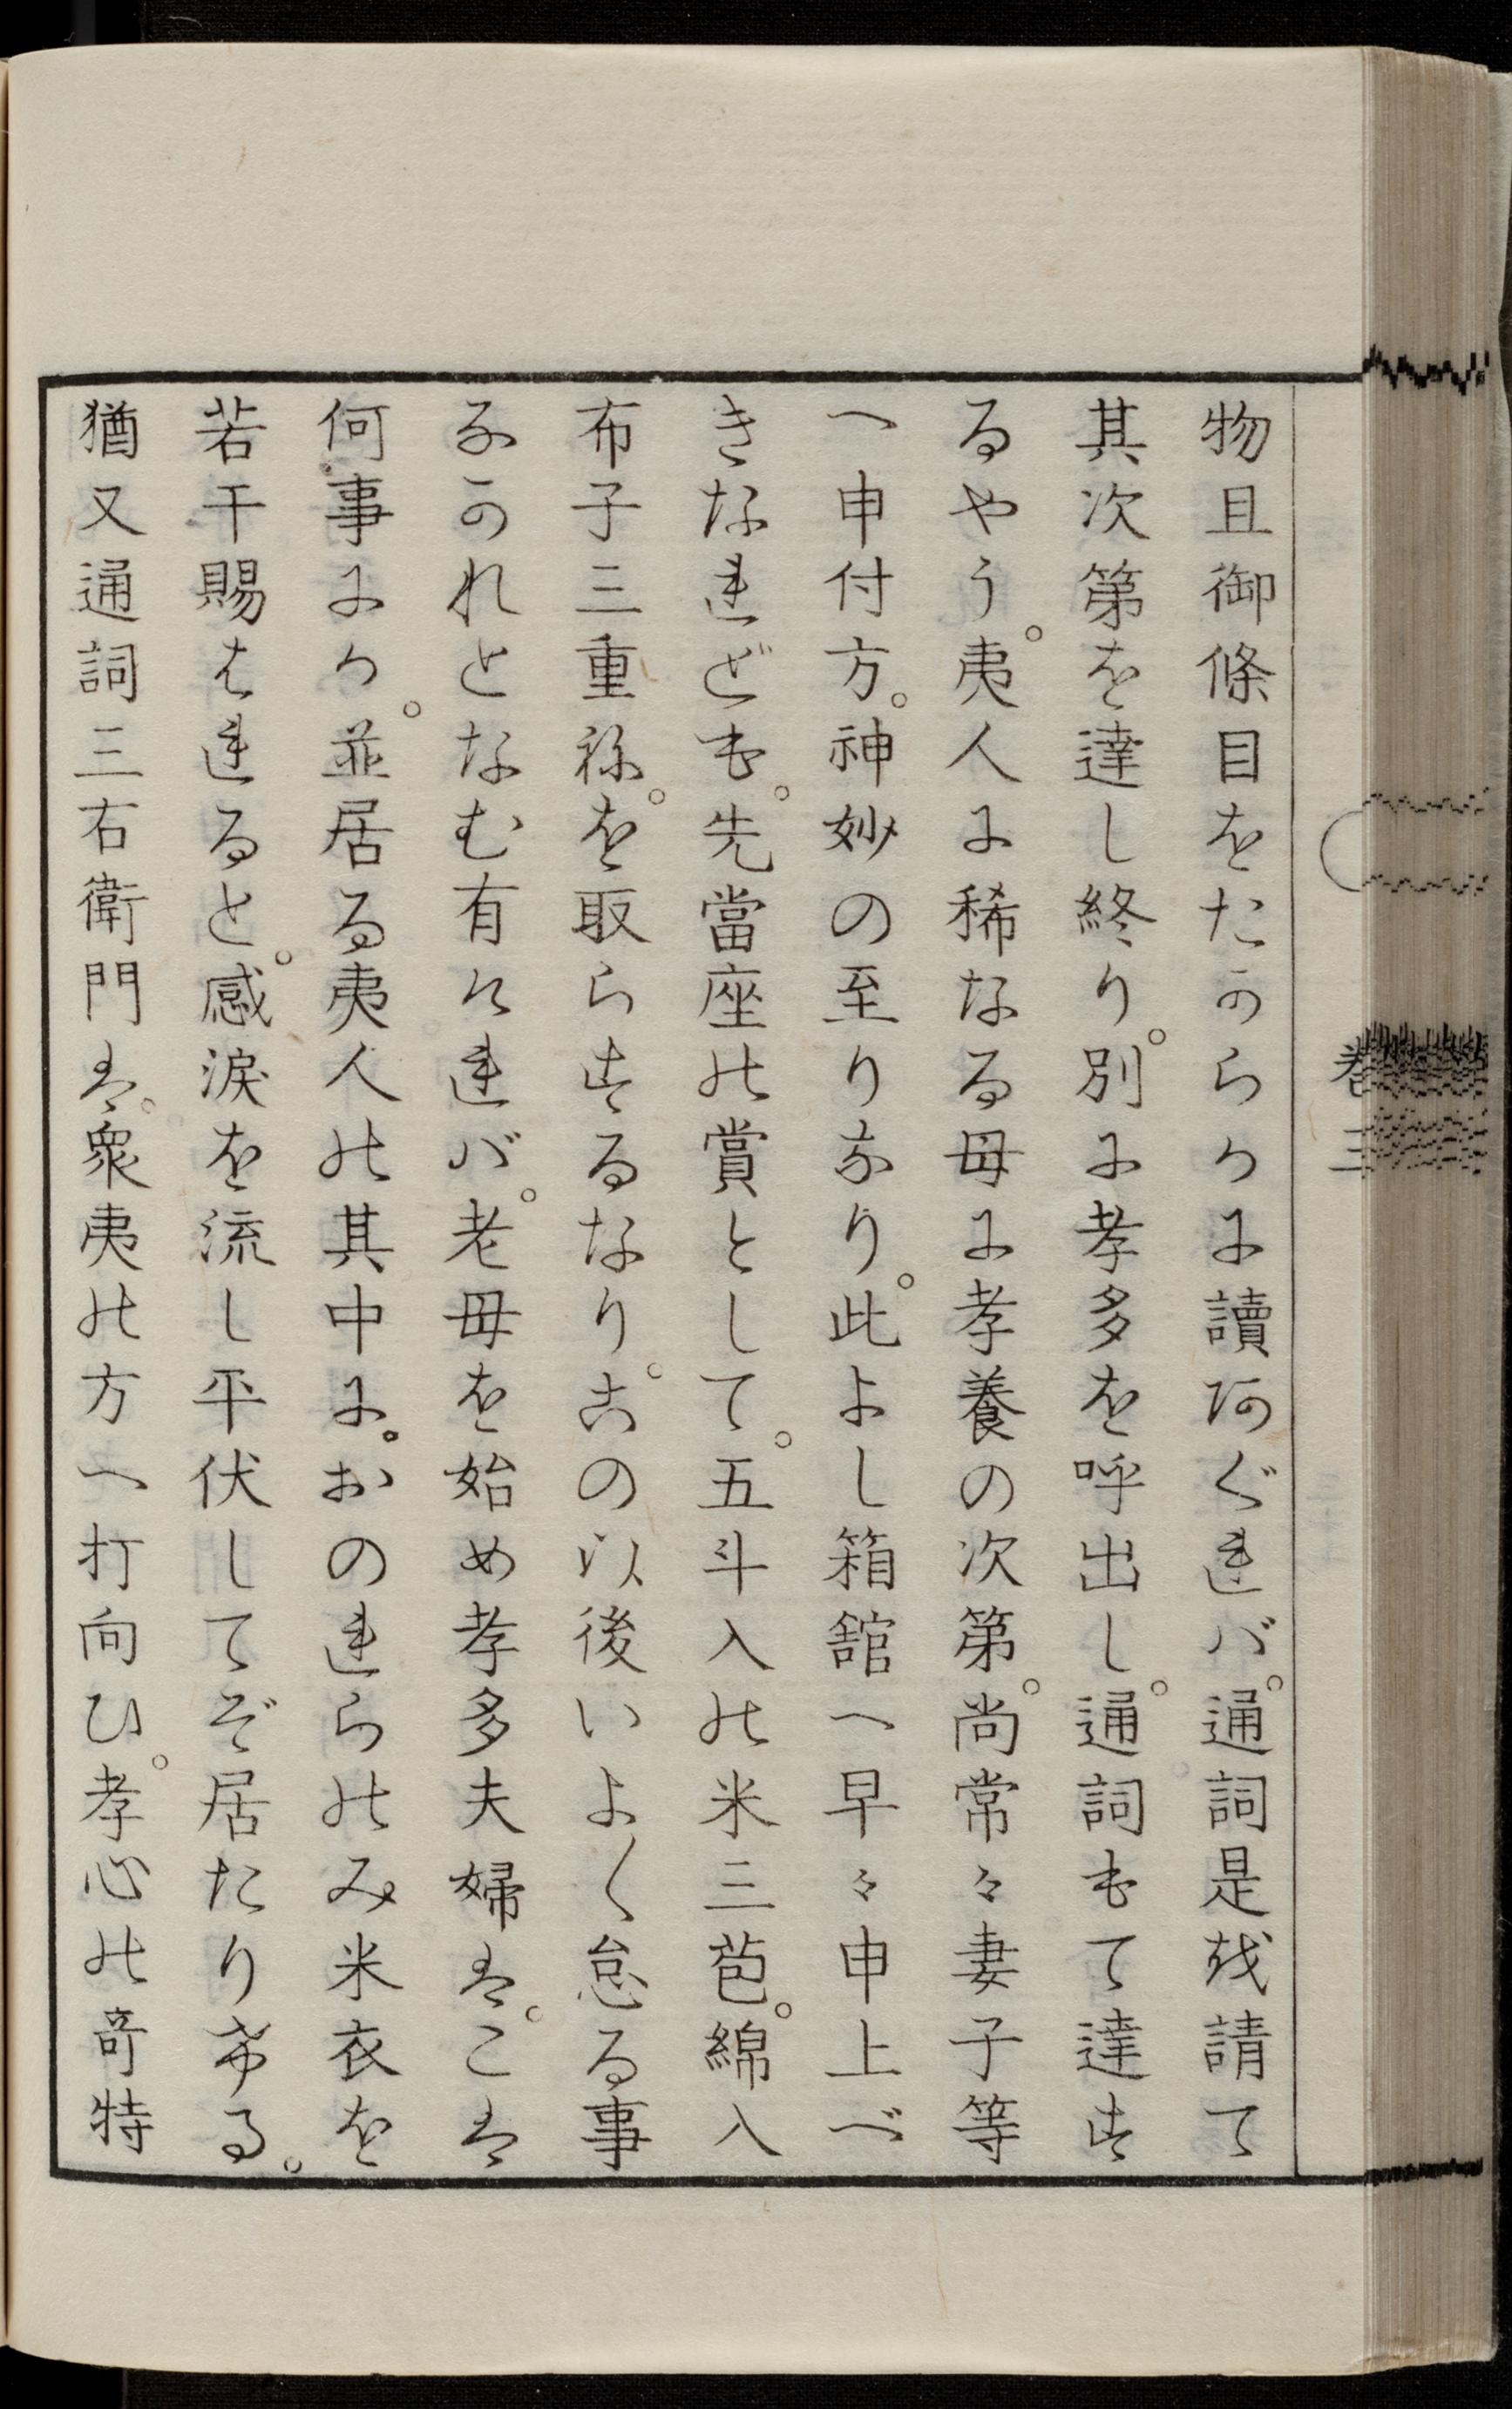 物且御條目をたからかに讀あぐれバ。通詞是を請て
其次第を達し終り。別に孝多を呼出し。通詞もて達す
るやう。夷人に稀なる母に孝養の次第。尚常々妻子等
へ申付方。神妙の至りなり。此よし箱舘へ早々申上べ
きなれども。先當座の賞として。五斗入の米三苞。綿入
布子三重ね。を取らするなり。この以後いよ〱怠る事
なかれとなむ有けれバ。老母を始め孝多夫婦は。こは
何事にか。並居る夷人の其中に。おのれらのみ米衣を
若干賜はれると。感涙を流し平伏してぞ居たりける。
猶又通詞三右衛門は。衆夷の方へ打向ひ。孝心の奇特
巻三